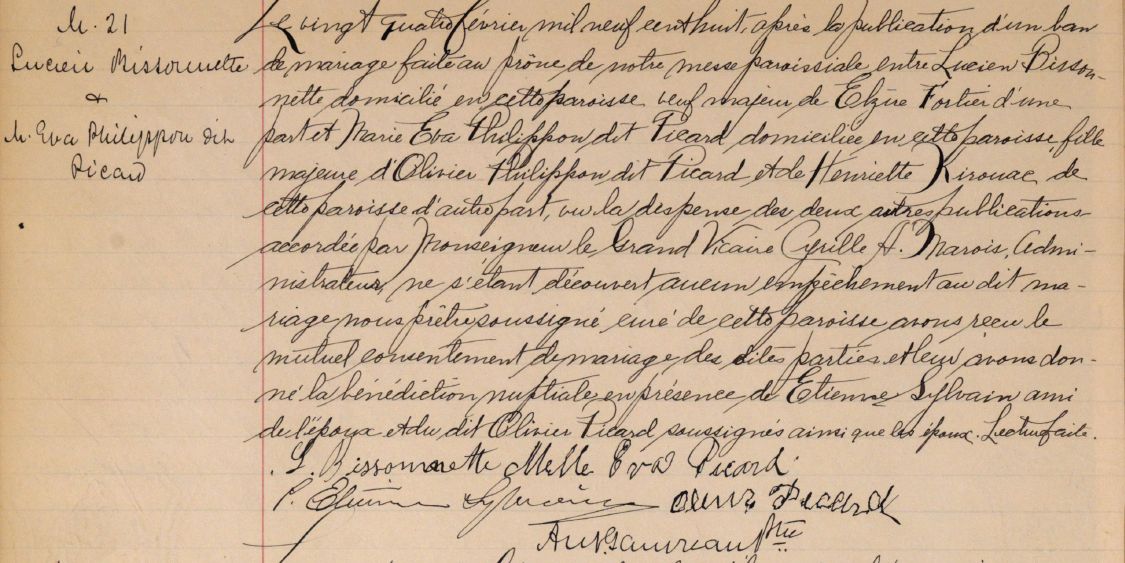 M. 21
Lucien Bissonnette
&
M. Eva Philippon dit
Picard
Le vingt quatre février, mil neuf cent huit, après la publication d'un ban
de mariage faite au prône de notre messe paroissiale entre Lucien Bisson-
nette domicilié en cette paroisse veuf majeur de Elzire Fortier d'une
part et Marie Eva Philippon dit Picard domiciliée en cette paroisse, fille
majeure d'Olivier Philippon dit Picard et de Henriette Kirouac de
cette paroisse d'autre part, vu la dispense des deux autres publications
accordée par Monseigneur le Grand Vicaire Cyrille A. Marois, Admi-
nistrateur, ne s'étant découvert aucun empêchement au dit ma-
riage nous prêtre soussigné curé de cette paroisse avons reçu le
mutuel consentement de mariage des dites parties et leur avons don-
né la bénédiction nuptiale en présence de Etienne Sylvain ami
de l'époux et du dit Olivier Picard soussignés ainsi que les époux. Lecture faite.
L. Bissonnette Melle Eva Picard
Sylvain Picard
Ptre